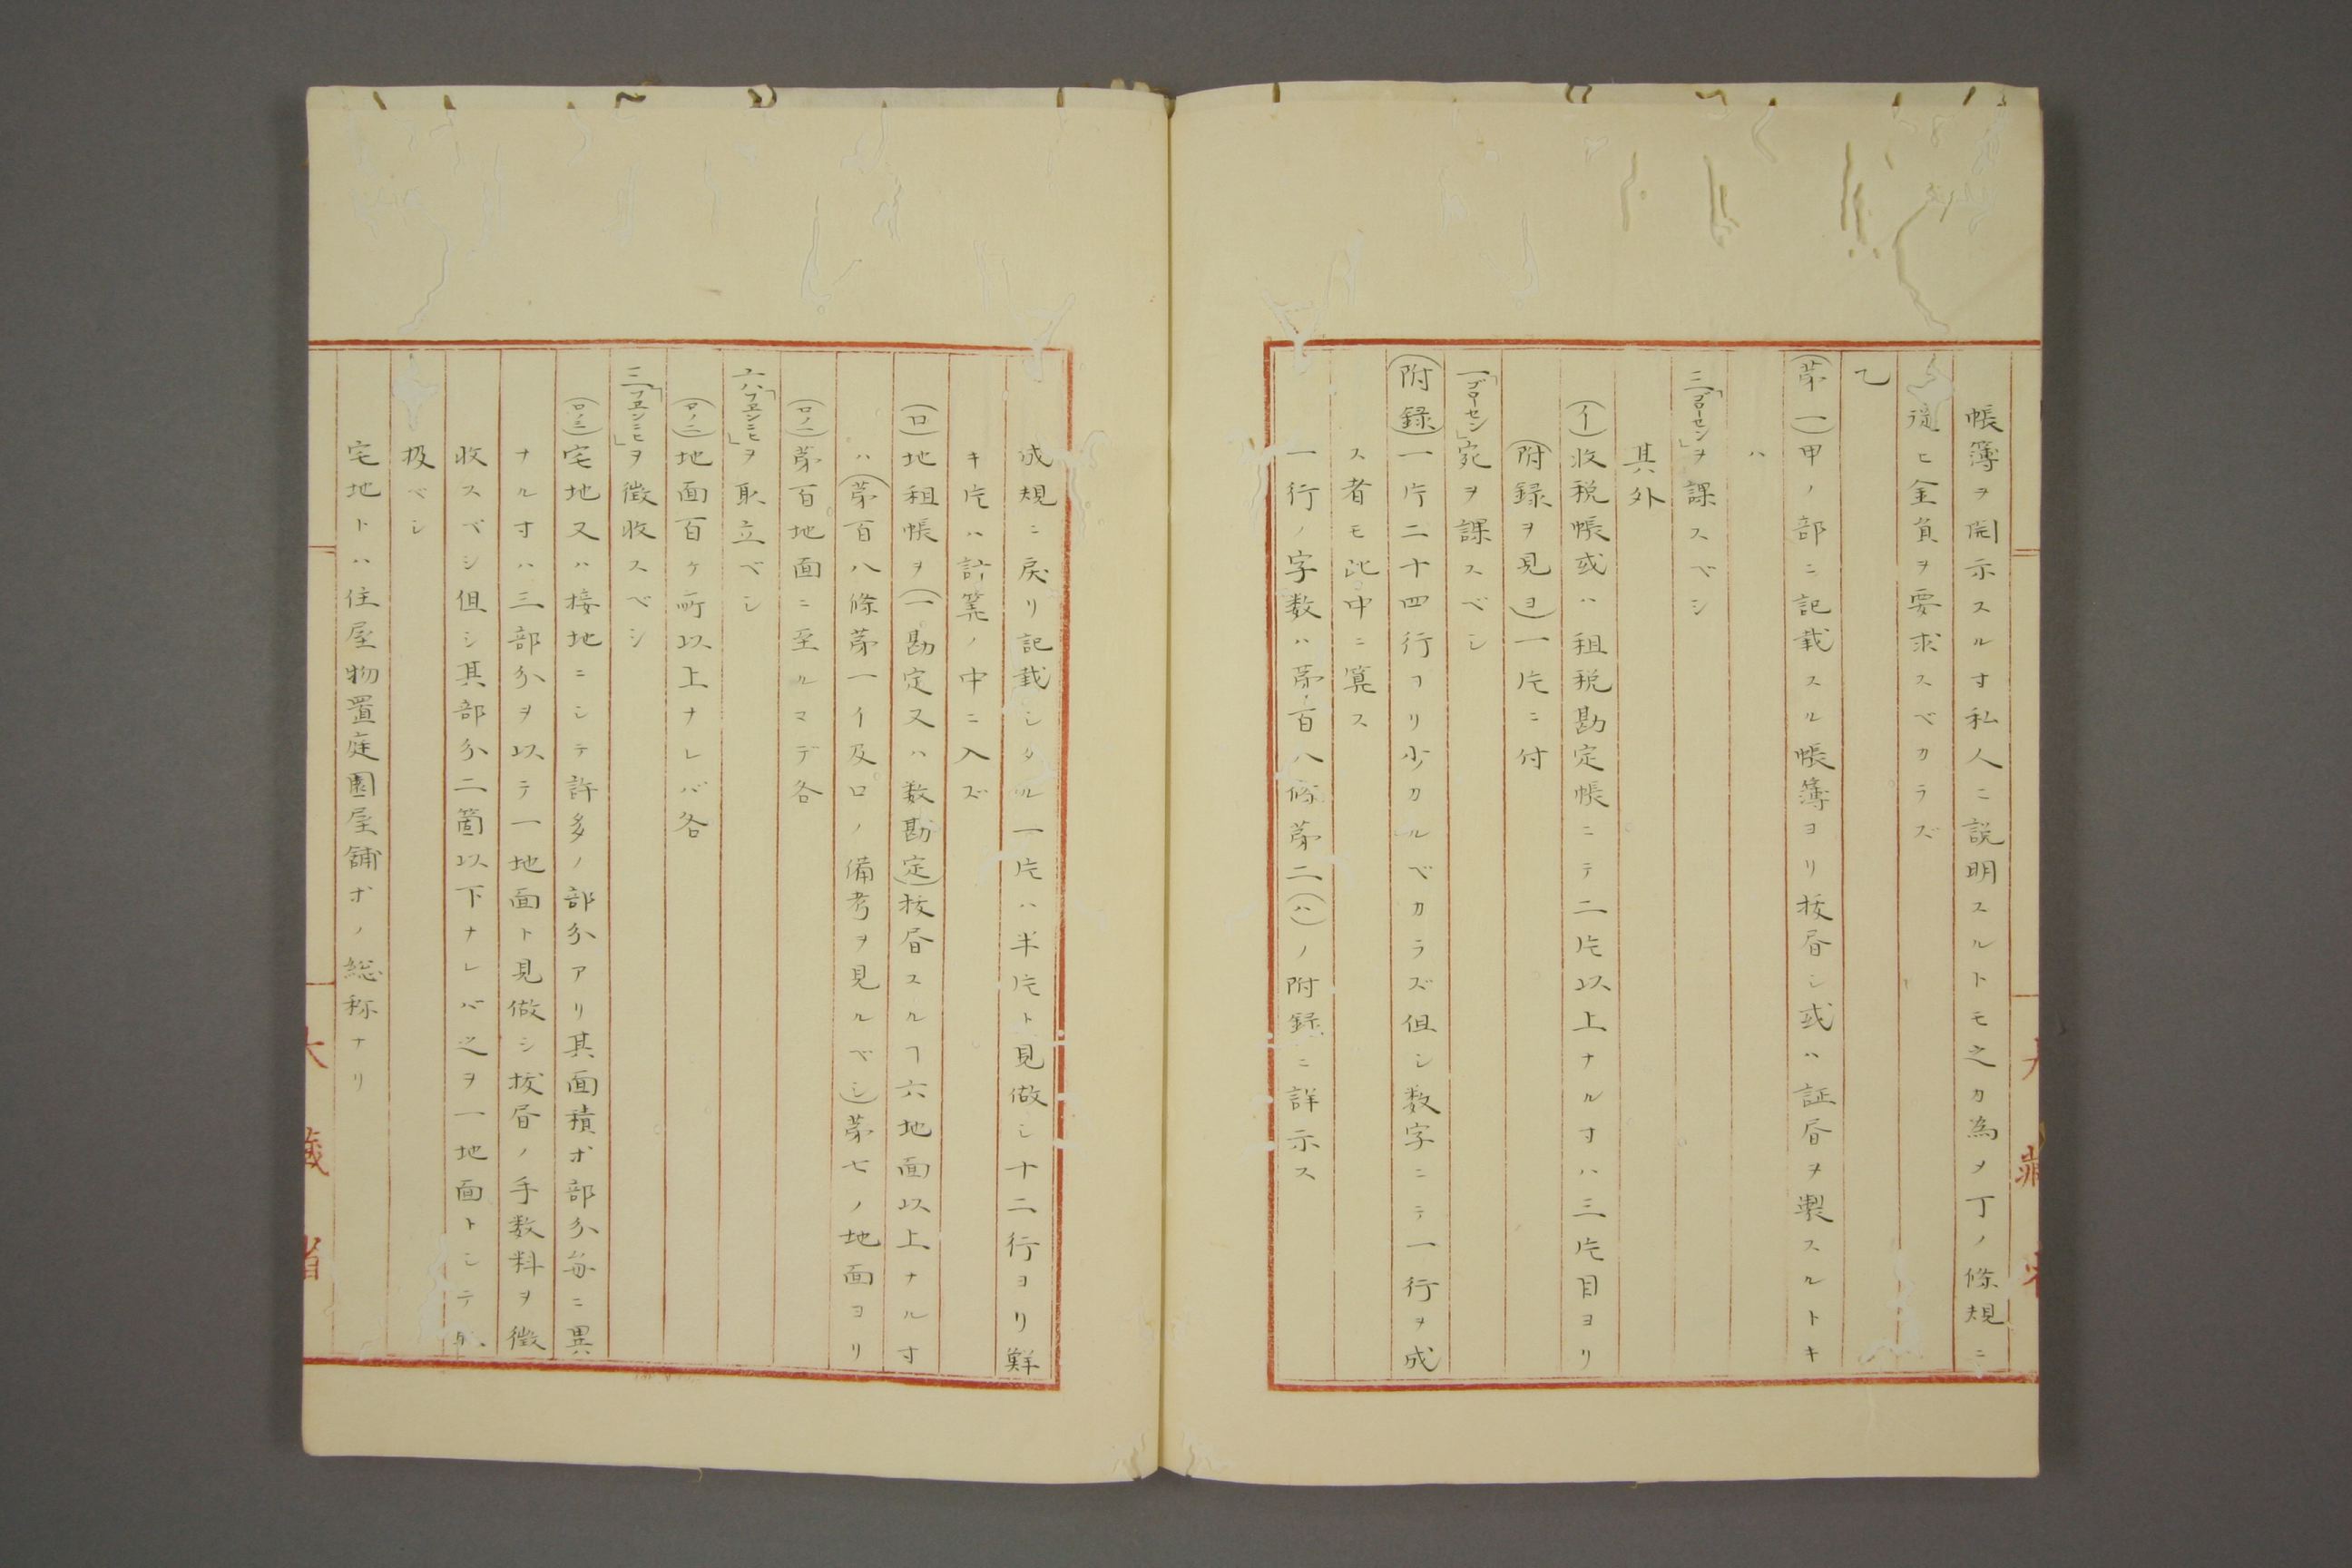 帳簿ヲ開示スルオ私人ニ説明スルトモ之カ為メ丁ノ條規ニ
從ヒ金負ヲ要求スベカラズ
乙
(第一)甲ノ部ニ記載スル帳簿ヨリ抜眘シ或ハ証眘ヲ製スルトキ
ハ
三「ゴローセン」ヲ課スベシ
其外
(イ)收税帳或ハ租税勘定帳ニテ二片以上ナルオハ三片目ヨリ
(附録ヲ見ヨ)一片ニ付
一「ゴローセン」宛ヲ課スベシ
(附録)一片二十四行ヨリ少カルベカラズ但シ数字ニテ一行ヲ成
ス者モ此中ニ算ス
一行ノ字数ハ第百八條第二(ハ)ノ附録ニ詳示ス
成規ニ戻リ記載シタル一片ハ半片ト見做シ十二行ヨリ鮮
キ片ハ計算ノ中ニ入ズ
(ロ)地租帳ヲ(一勘定又ハ数勘定)抜眘スルヿ六地面以上ナルオ
ハ(第百八條第一イ及ロノ備考ヲ見ルベシ)第七ノ地面ヨリ
(ロノ一)第百地面ニ至ルマデ各
六「プエンニヒ」ヲ取立ベシ
(ロノ二)地面百ケ所以上ナレバ各
三「プエンニヒ」ヲ徴收スベシ
(ロノ三)宅地又ハ接地ニシテ許多ノ部分アリ其面積オ部分毎ニ異
ナルオハ三部分ヲ以テ一地面ト見做シ抜眘ノ手数料ヲ徴
收スベシ但シ其部分二箇以下ナレバ之ヲ一地面トシテ
扱ベシ
宅地トハ住屋物置庭園屋舗オノ総称ナリ
大藏省